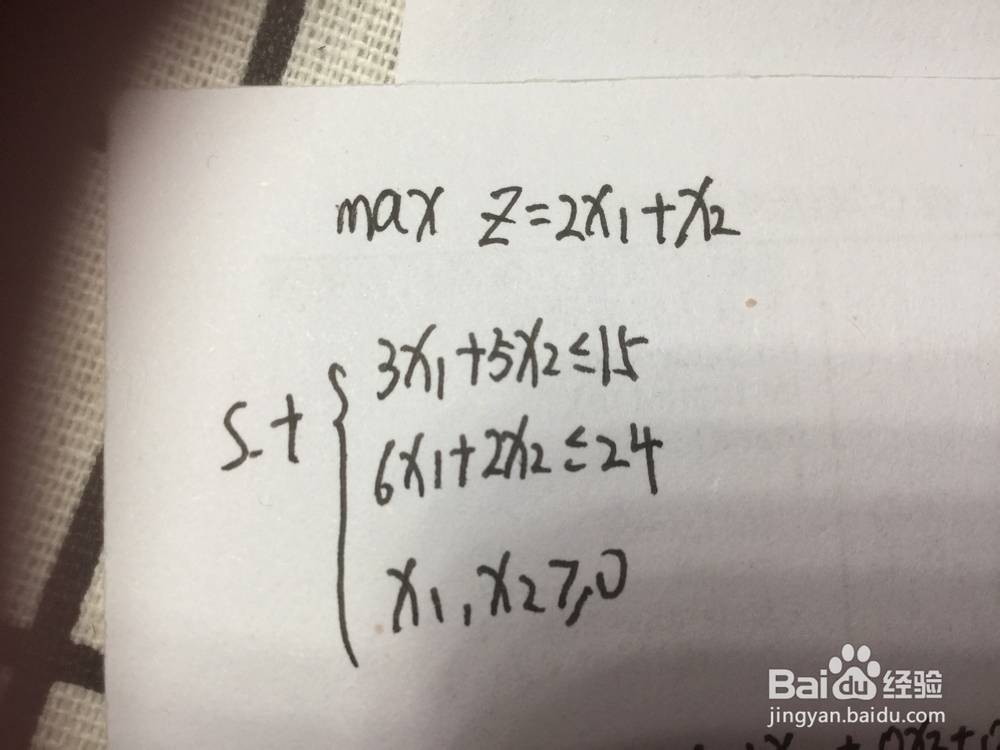 max z=2x₁+x₂
3x₁+5x₂≤15
S.t
6x₁+2x₂≤24
x₁,x₂≥0
Baidu经验
jingyan.baidu.com